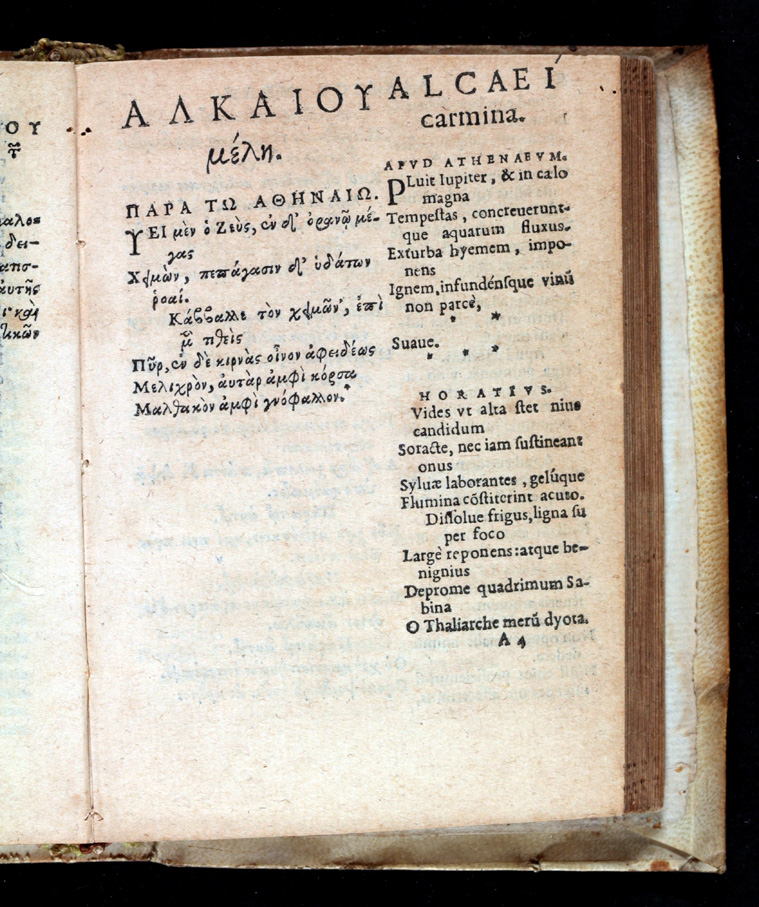 ΟΥ
ΑΛΚΑΙΟΥ
μέλη.
ΠΑΡΑ ΤΩ ΑΘΗΝΑΙΩ.
ΥΕΙ μὲν ὁ Ζεὺς, ἐν δ' ὀρανῷ μέ-
γας
Χειμὼν, πεπάγασιν δ' ὑδάτων
ῥοαί.
Κάββαλλε τὸν χειμῶν', ἐπὶ
μὲν τιθεὶς
Πῦρ, ἐν δὲ κιρνὰς οἶνον ἀφειδέως
Μελιχρὸν, αὐτὰρ ἀμφὶ κόρσα
Μαλθακὸν ἀμφὶ γνόφαλλον.*
ALCAEI
carmina.
APVD ATHENAEVM.
PLuit Iupiter, & in cælo
magna
Tempestas, concreuerunt-
que aquarum fluxus.
Exturba hyemem, impo-
nens
Ignem, infundénsque vinũ
non parcè,
* *
Suaue.
* * *
HORATIVS.
Vides vt alta stet niue
candidum
Soracte, nec iam sustineant
onus
Syluæ laborantes, gelúque
Flumina cõstiterint acuto.
Dissolue frigus, ligna su
per foco
Largè reponens: atque be-
nignius
Deprome quadrimum Sa-
bina
O Thaliarche merũ dyota.
A 4